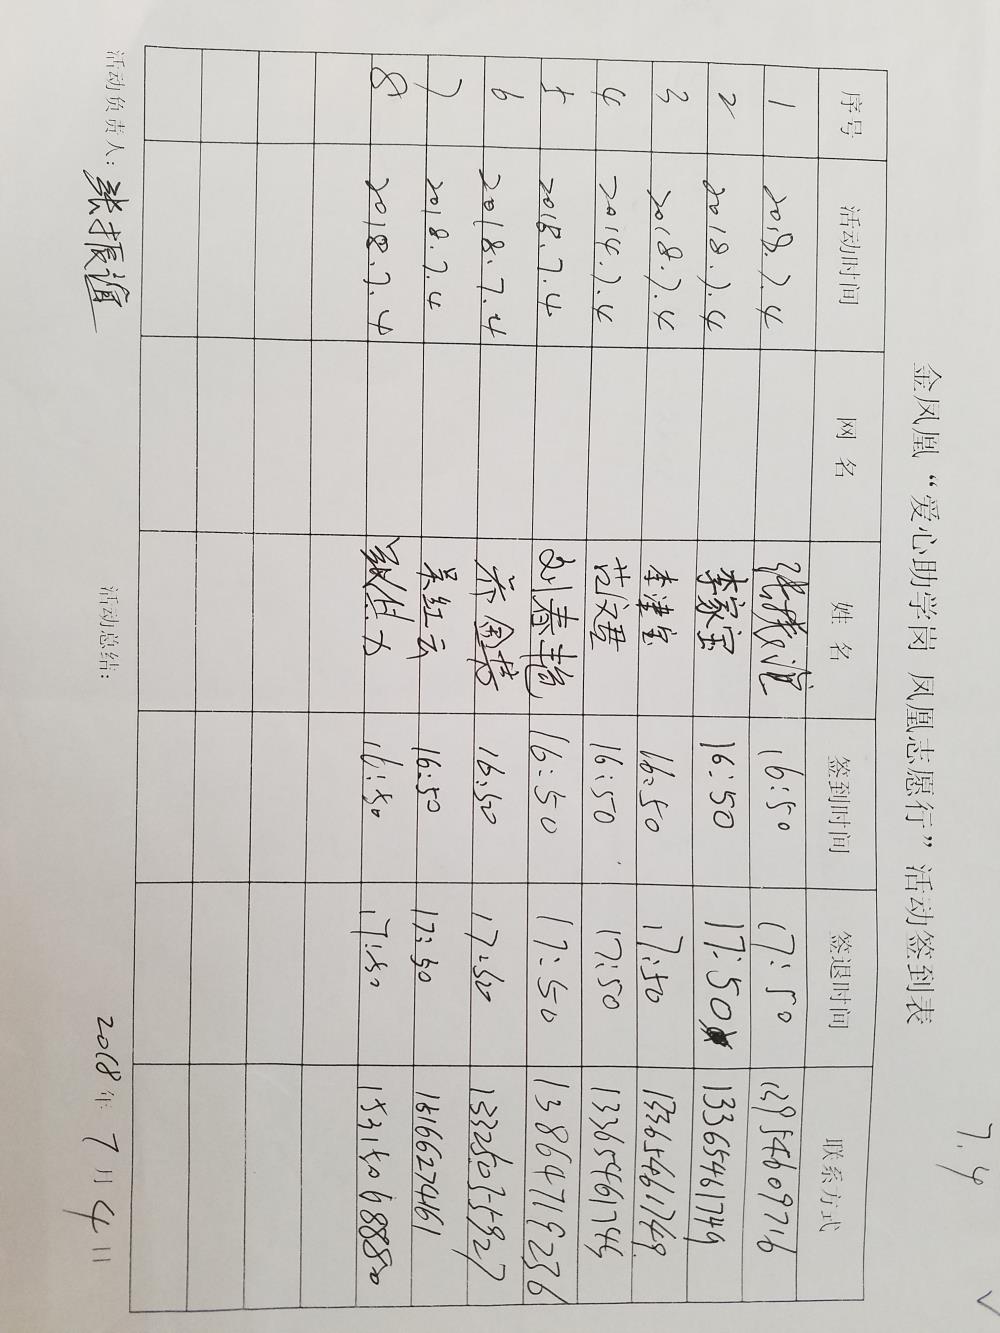 7.4
金凤凰“爱心助学岗 凤凰志愿行”活动签到表
序号 活动时间 网 名 姓 名 签到时间 签退时间 联系方式
1 2018.7.4 16:50 17:50 13954609716
2 2018.7.4 李家宝 16:50 17:50 13365461749
3 2018.7.4 李津宝 16:50 17:50 13365461749
4 2014.7.4 范文君 16:50 17:50 13365461744
5 2018.7.4 刘春艳 16:50 17:50 13864719236
6 2018.7.4 乔金芳 16:50 17:50 13325035927
7 2018.7.4 吴红云 16:50 17:50 18166627461
8 2018.7.4 16:50 17:50 15315068880
活动负责人：张振谊 活动总结： 2018年 7月 4日